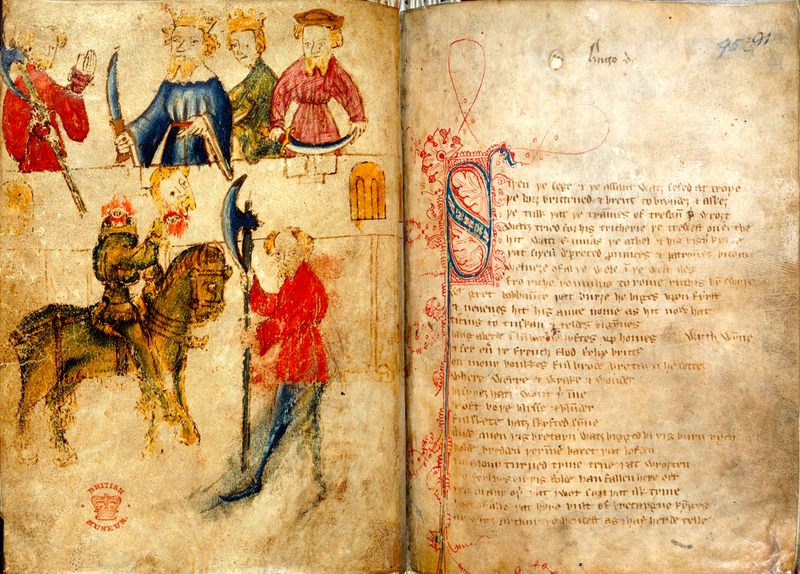 95 91
Hugo d
Siþen þe sege & þe assaut watz sesed at troye
þe borȝ brittened & brent to brondez & askez
þe tulk þat þe trammes of tresoun þer wroȝt
watz tried for his tricherie þe trewest on erthe
hit watz ennias þe athel & his highe
þat siþen depreced prouinces & patrounes bicome
welneȝe of al þe wele in þe west iles
fro riche romulus to rome ricchis hym
gret bobbaunce þat burȝe he biges vpon fyrst
& neuenes hit his aune nome as hit now hat
ticius to tuskan & teldes bigynnes
lyftes vp homes wyth wynne
fer ouer þe french flod felix brutus
on mony bonkkes ful brode bretayn he settez
where werre & wrake & wonder
hatz wont þer inne
& oft boþe blysse & blunder
ful skete hatz skyfted synne
Ande quen þis bretayn watz bigged bi þis burn rych
bolde bredden þer inne baret þat lofden
mony turned tyme tene þat wroȝten
on þis folde han fallen here oft
þat I wot syn þat ilk tyme
of alle þat here bult of bretaygne kynges
arthur þe hendest as I haf herde telle
BRITISH
MUSEUM